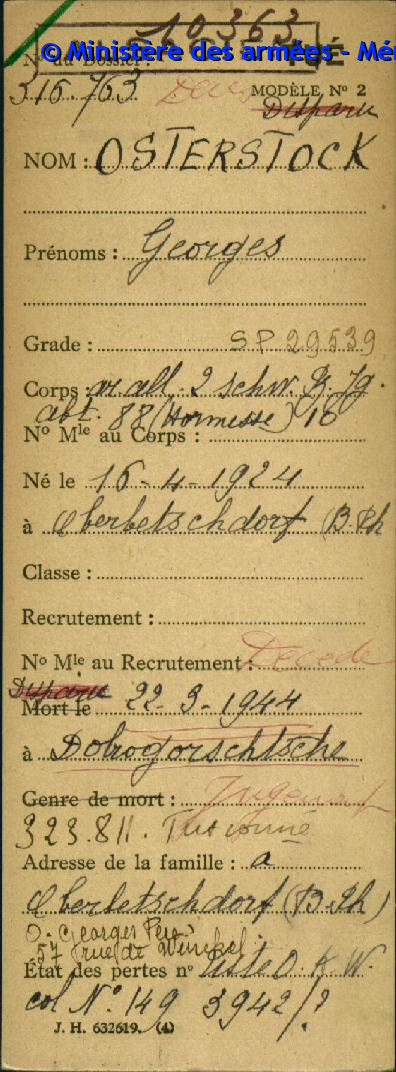 10363
© Ministère des armées - Mé
N° du Dossier :
316.763
MODÈLE, N° 2
Disparu
NOM : OSTERSTOCK
Prénoms : Georges
Grade : SP 29539
Corps : ar. all. 2 schw. Z. Jg.
abt. 88 (Hormesse) 16
N° Mle au Corps :
Né le 16-4-1924
à Oberbetschdorf (B. Rh
Classe :
Recrutement :
Décédé
N° Mle au Recrutement :
Disparu
Mort le 22-3-1944
à Dobrogorschtsche
Genre de mort : Jugement
323.811.
Adresse de la famille : a
Oberbetschdorf (B. Rh)
O. Georges Père
57 rue de
État des pertes n° Liste O.K.W.
col N° 149 3942/?
J. H. 632619. (4)